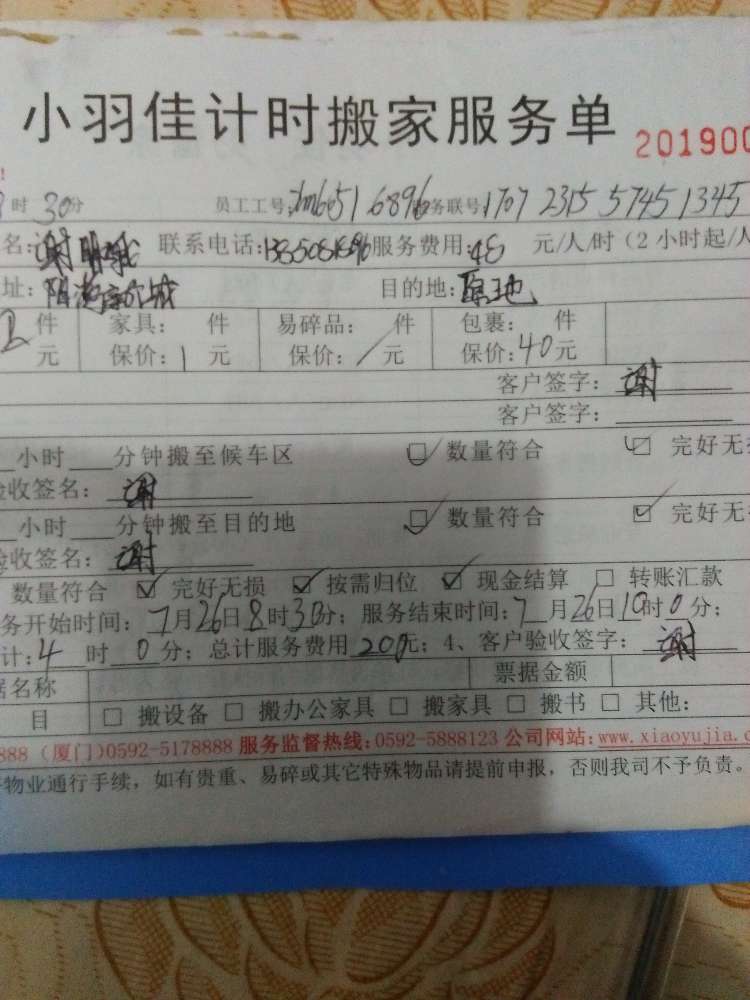 小羽佳计时搬家服务单 201900
时 30分 员工工号: 务联号: 1707 2315 5745 1345
名: 谢 联系电话: 服务费用: 48 元/人/时（2小时起/人
址: 目的地: 原地
件 家具: 件 易碎品: 件 包裹: 件
元 保价: 1 元 保价: / 元 保价: 40 元
客户签字: 谢
客户签字:
小时 分钟搬至候车区 ☑ 数量符合 ☑ 完好无
收签名: 谢
小时 分钟搬至目的地 ☑ 数量符合 ☑ 完好无
收签名: 谢
数量符合 ☑ 完好无损 ☑ 按需归位 ☑ 现金结算 □ 转账汇款
务开始时间: 7月26日8时30分; 服务结束时间: 7月26日10时0分;
计: 4 时 0 分; 总计服务费用 200元; 4、客户验收签字: 谢
据名称 票据金额
目 □ 搬设备 □ 搬办公家具 □ 搬家具 □ 搬书 □ 其他:
888 (厦门)0592-5178888 服务监督热线:0592-5888123 公司网站:www.xiaoyujia.c
物业通行手续，如有贵重、易碎或其它特殊物品请提前申报，否则我司不予负责。